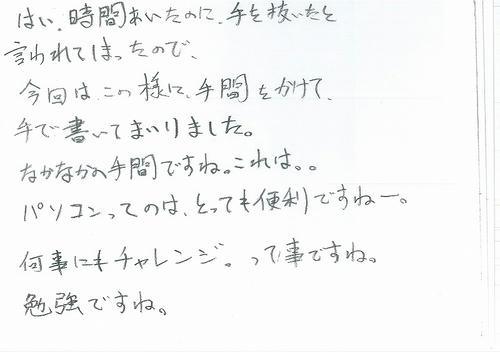 はい。時間あいたのに、手を抜いたと
言われてしまったので、
今回は、この様に、手間をかけて、
手で書いてまいりました。
なかなかの手間ですね。これは。。
パソコンってのは、とっても便利ですねー。
何事にもチャレンジ。って事ですね。
勉強ですね。